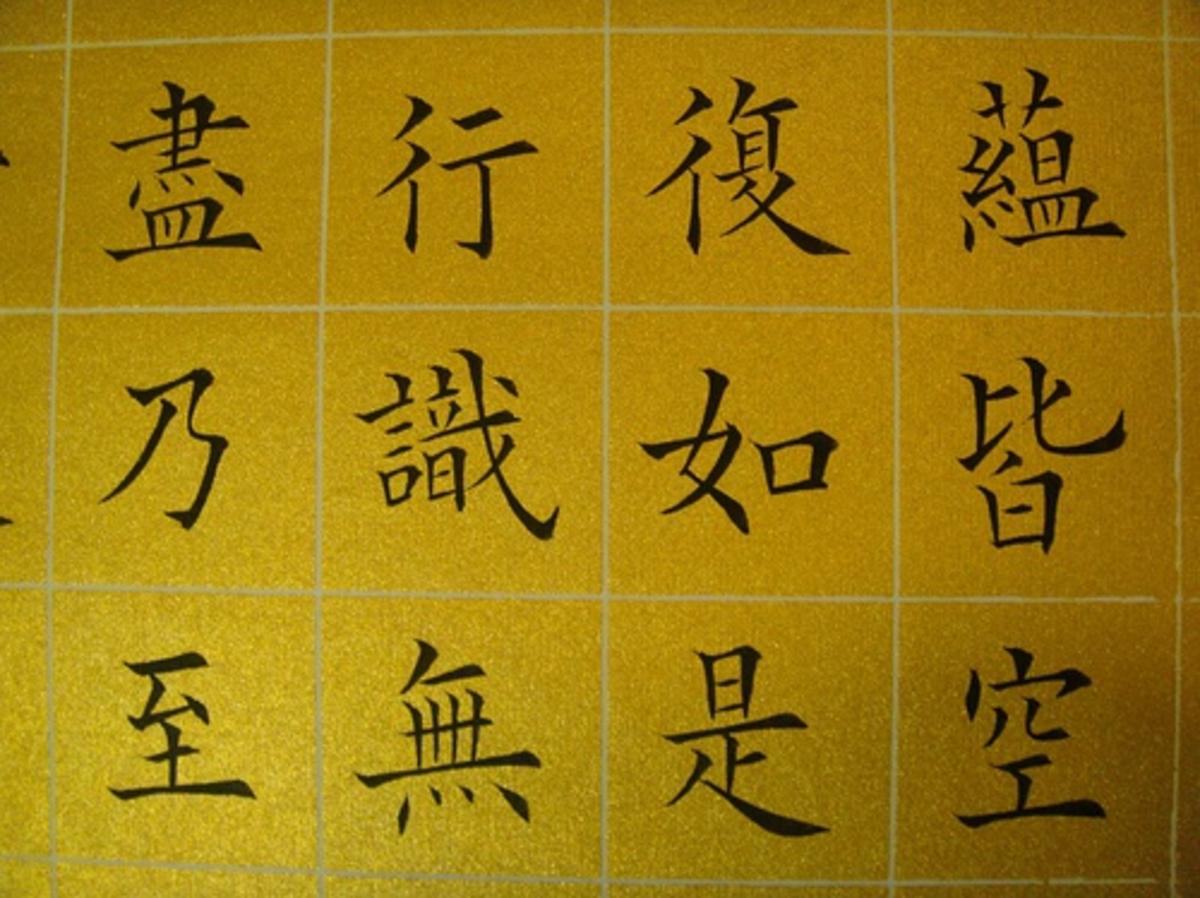 蘊皆空
復如是
行識無
盡乃至